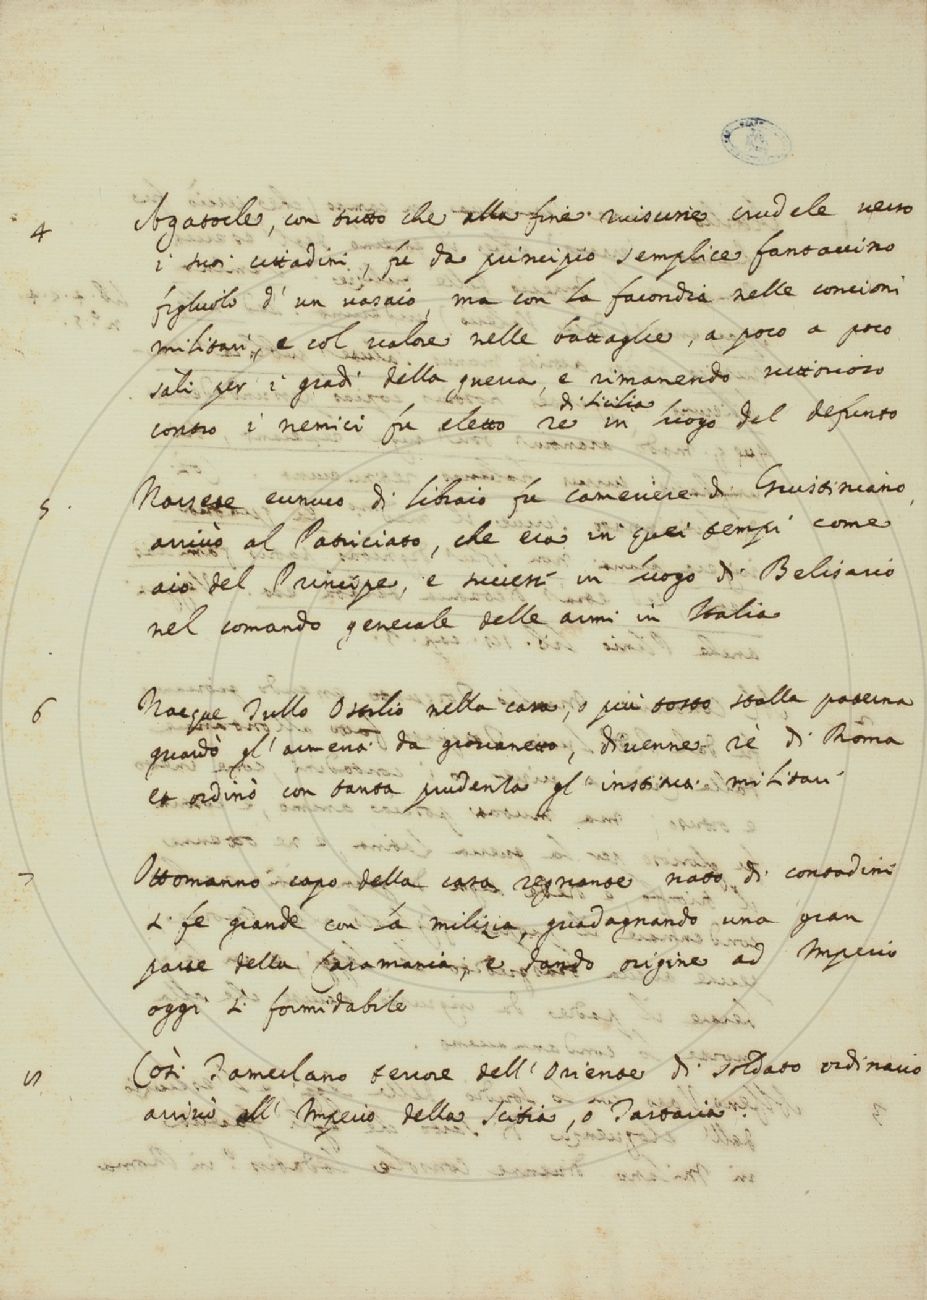 4 Agatocle, con tutto che alla fine riuscisse crudele verso
i suoi cittadini, fu da principio semplice fantaccino
figliuolo d' un vasaio, ma con la facondia nelle concioni
militari, e col valore nelle battaglie, a poco a poco
salì per i gradi della guerra, e rimanendo vittorioso
di Sicilia
contro i nemici fu eletto re in luogo del defunto
5 Narsete eunuco di libraio fu cameriere di Giustiniano,
arrivò al Patriciato, che era in quei tempi come
aio del Principe, e successe in luogo di Belisario
nel comando generale delle armi in Italia
6 Nacque Tullo Ostilio nella casa, o più tosto stalla paterna
guardò gl' armenti da giovanetto, divenne rè di Roma
et ordinò con tanta prudenza gl' instituti militari
7 Ottomanno capo della casa regnante nato di contadini
si fe grande con la milizia, guadagnando una gran
parte della Caramania, e dando origine ad Imperio
oggi sì formidabile
Così Tamerlano terrore dell' Oriente di soldato ordinario
arrivò all' Imperio della Scitia, o Tartaria.